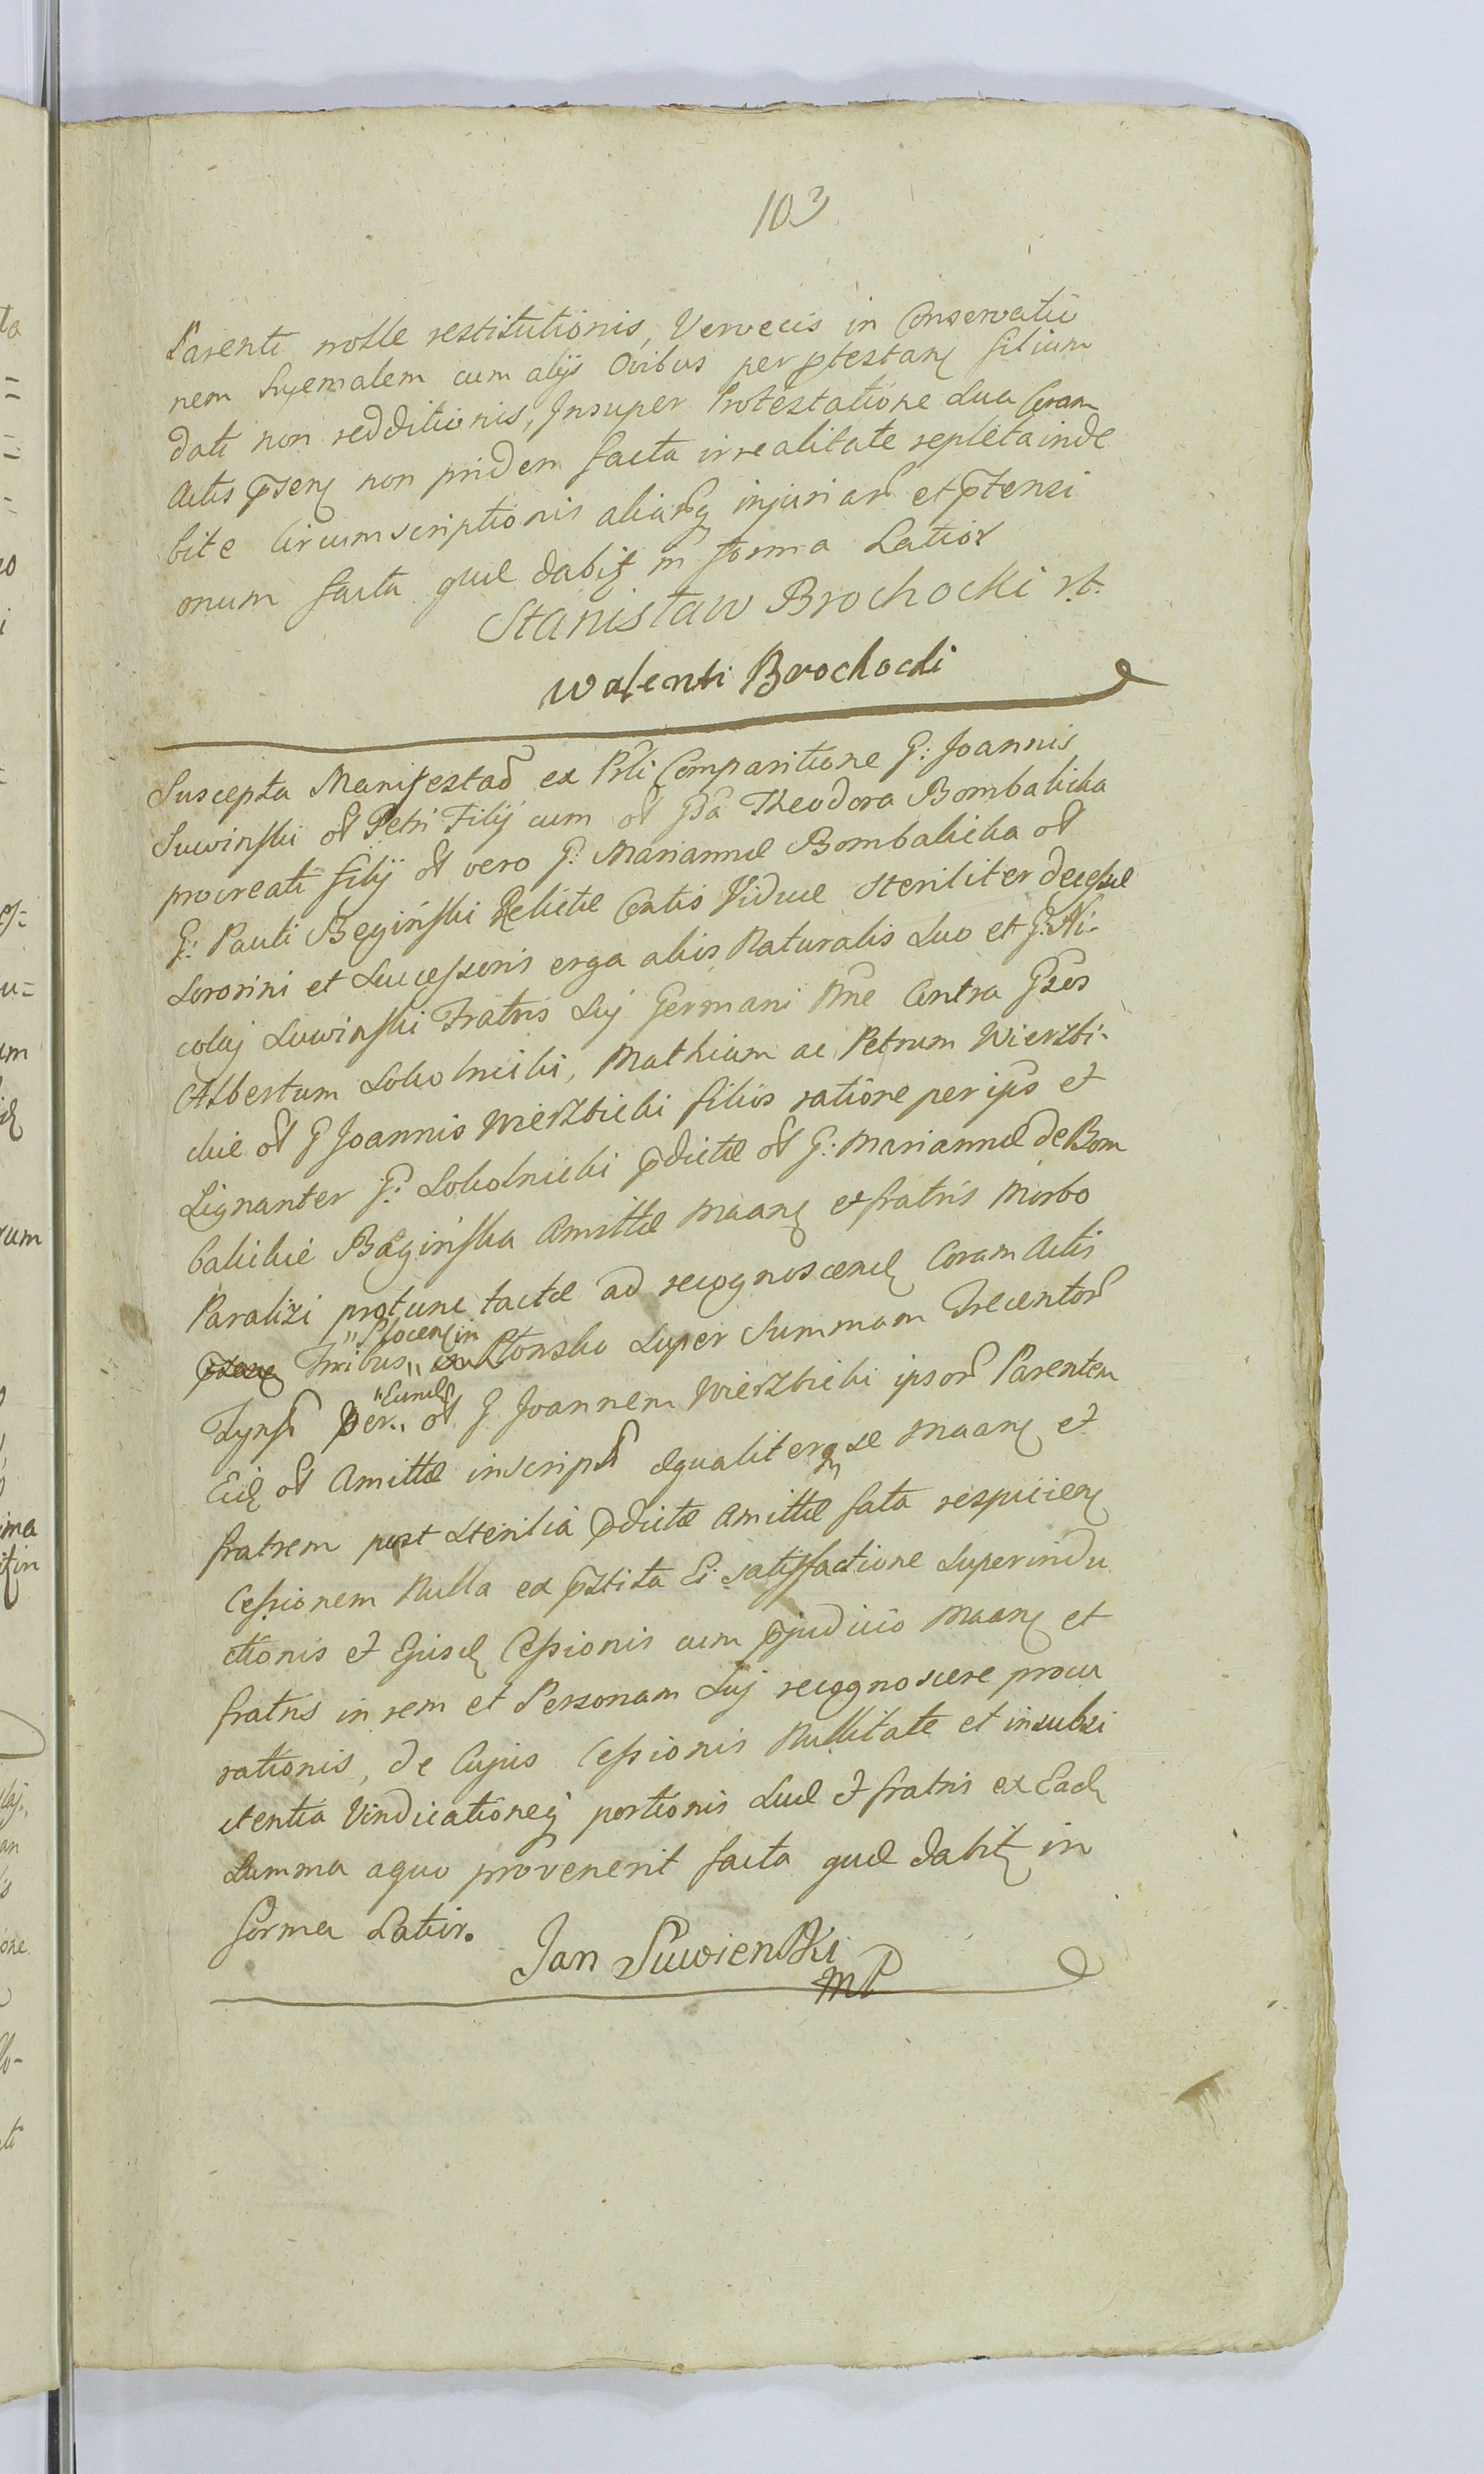 103
Parenti nolle restitutionis, Vervecis in Conservatio
nem hyemalem cum alijs Ovibus per ptestan filium
dati non redditionis, Insuper Protestatione Sua Coram
Actis psen non pridem facta irrealitate repleta inde
bite Circumscriptionis aliarq injuriar et ptensi
onum facta quæ dabit in forma Latior
Stanisław Brochocki
Walenti Brochocki
Suscepta Manifestao ex Prli Comparitione G: Joannis
Suwinski ol Petri Filij cum ol Gsa Theodora Bombalicka
procreati filij ol vero G: Mariannæ Bombalicka ol
G: Pauli Bęgiński Relictæ Contis Viduæ steriliter decessæ
Sororini et Successoris erga alios Naturalis Suo et G. Ni-
colaj Suwinski Fratris Suj Germani Nne Contra Gsos
Albertum Sokolnicki, Mathiam ac Petrum Wierzbi-
ckie ol G Joannis Wierzbicki filios ratione per ipso et
Signanter G: Sokolnicki pdictæ ol G: Mariannæ de Bom
balickie Bągińska Amittæ Maan et fratris Morbo
Paralizi protunc tactæ ad recognoscend Coram Actis
Tribus "Plocen in Płonsko Super Summam Trecentor
Tynf per "Eund ol G Joannem Wierzbicki ipsor Parentem
Eid ol Amittæ inscript æqualiterq se Maan et
fratrem post Sterilia pdictæ Amittæ fata respicien
Cessionem Nulla ex pstita Ei satisfactione Superindu
ctionis et Ejusd Cessionis cum pjudicio Maan et
fratris in rem et Personam Suj recognoscere procu
rationis, de Cujus Cessionis Nullitate et insubsi
stentia Vindicationeq portionis Suæ et fratris ex Ead
Summa aquo provenerit facta quæ dabit in
forma Latior.
Jan Suwienski
mp